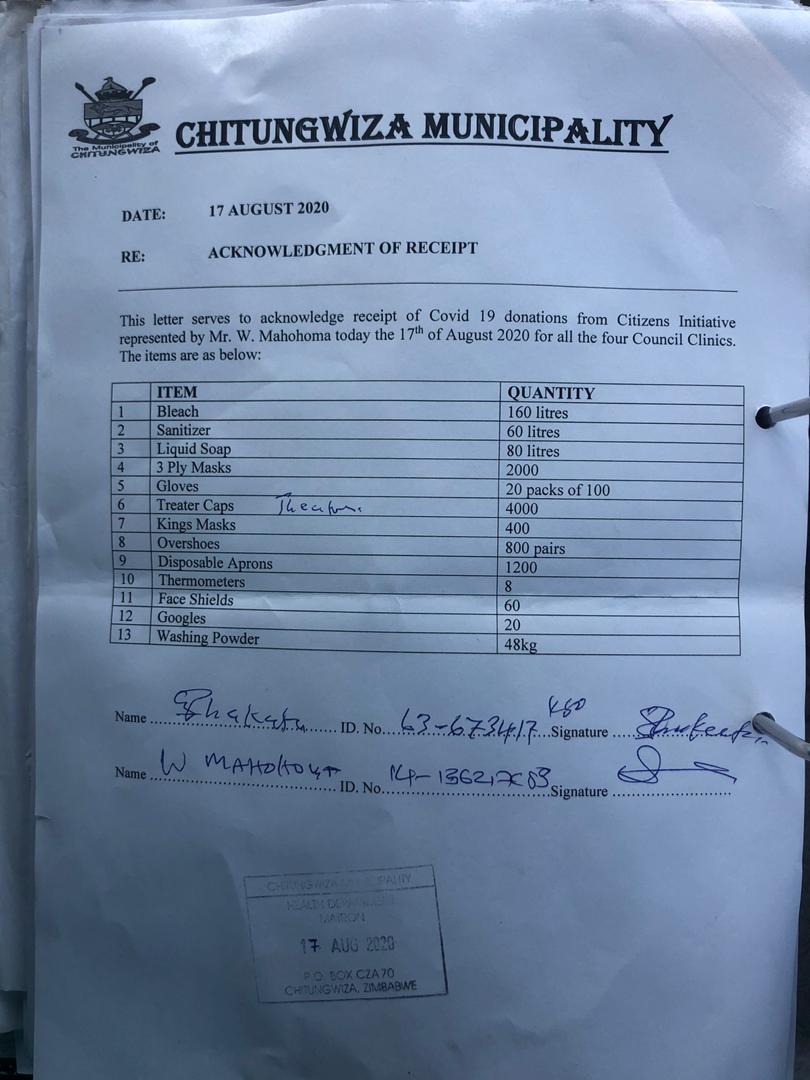 The Municipality of
CHITUNGWIZA
CHITUNGWIZA MUNICIPALITY
DATE: 17 AUGUST 2020
RE: ACKNOWLEDGMENT OF RECEIPT
This letter serves to acknowledge receipt of Covid 19 donations from Citizens Initiative
represented by Mr. W. Mahohoma today the 17th of August 2020 for all the four Council Clinics.
The items are as below:
ITEM QUANTITY
1 Bleach 160 litres
2 Sanitizer 60 litres
3 Liquid Soap 80 litres
4 3 Ply Masks 2000
5 Gloves 20 packs of 100
6 Treater Caps 4000
7 Kings Masks 400
8 Overshoes 800 pairs
9 Disposable Aprons 1200
10 Thermometers 8
11 Face Shields 60
12 Googles 20
13 Washing Powder 48kg
Name ID. No. Signature
Name W MAHOHOMA ID. No. Signature
CHITUNGWIZA MUNICIPALITY
HEALTH DEPARTMENT
MATRON
17 AUG 2020
P.O. BOX CZA70
CHITUNGWIZA, ZIMBABWE